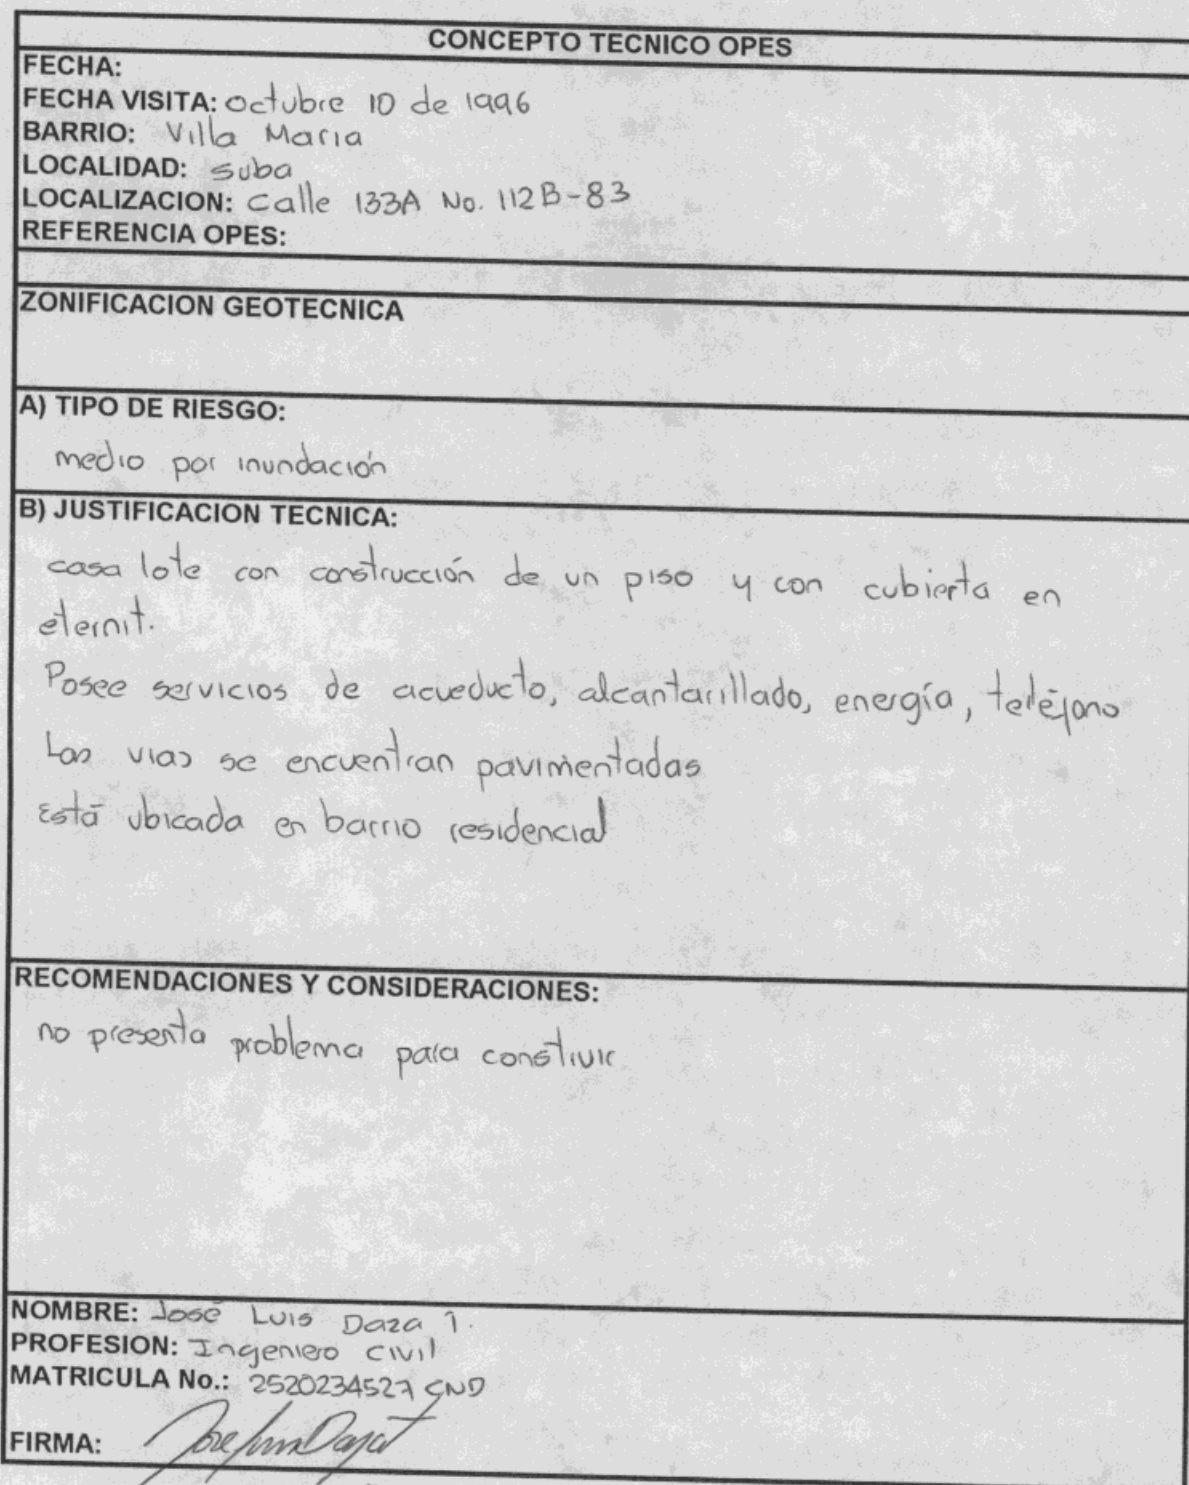 CONCEPTO TECNICO OPES
FECHA:
FECHA VISITA: Octubre 10 de 1996
BARRIO: Villa Maria
LOCALIDAD: suba
LOCALIZACION: Calle 133A No. 112B-83
REFERENCIA OPES:
ZONIFICACION GEOTECNICA
A) TIPO DE RIESGO:
medio por inundación
B) JUSTIFICACION TECNICA:
casa lote con construcción de un piso y con cubierta en
eternit.
Posee servicios de acueducto, alcantarillado, energía, teléfono
Las vias se encuentran pavimentadas
Está ubicada en barrio residencial
RECOMENDACIONES Y CONSIDERACIONES:
no presenta problema para construir
NOMBRE: José Luis Daza
PROFESION: Ingeniero Civil
MATRICULA No.: 2520234527 CND
FIRMA: